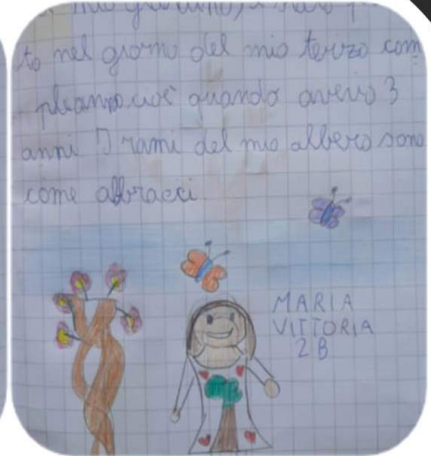 to nel giorno del mio terzo com
pleanno, cioè quando avevo 3
anni I rami del mio albero sono
come abbracci
MARIA
VITTORIA
2B